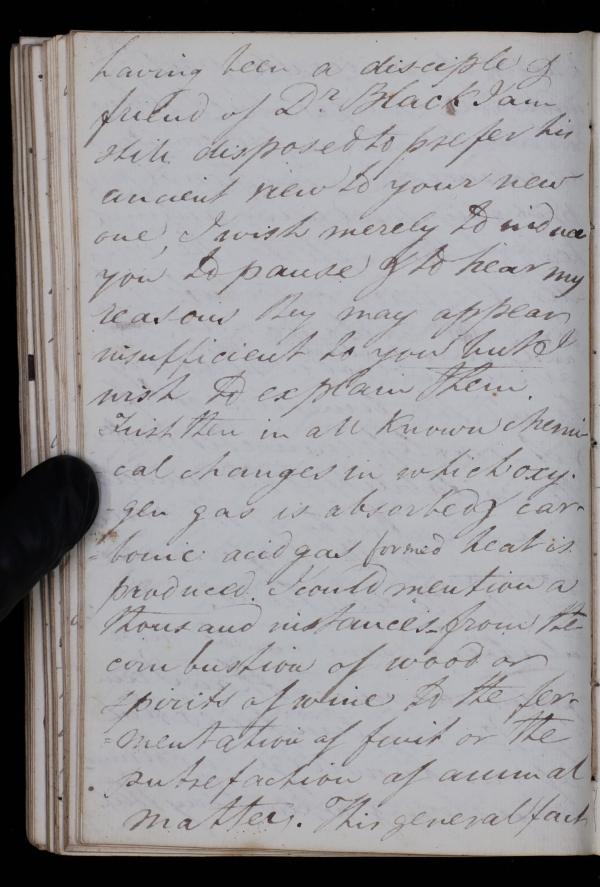 having been a disciple &
friend of Dr Black I am
still disposed to prefer his
ancient view to your new
one, I wish merely to induce
you to pause & to hear my
reasons they may appear
insufficient to you but I
wish to explain them.
First then in all known chemi
cal changes in which oxy-
-gen gas is absorbed & car-
-bonic acid gas formed heat is
produced. I could mention a
thousand instances from the
combustion of wood or
spirits of wine to the fer-
=mentation of fruit or the
putrefaction of animal
matter. This general fact